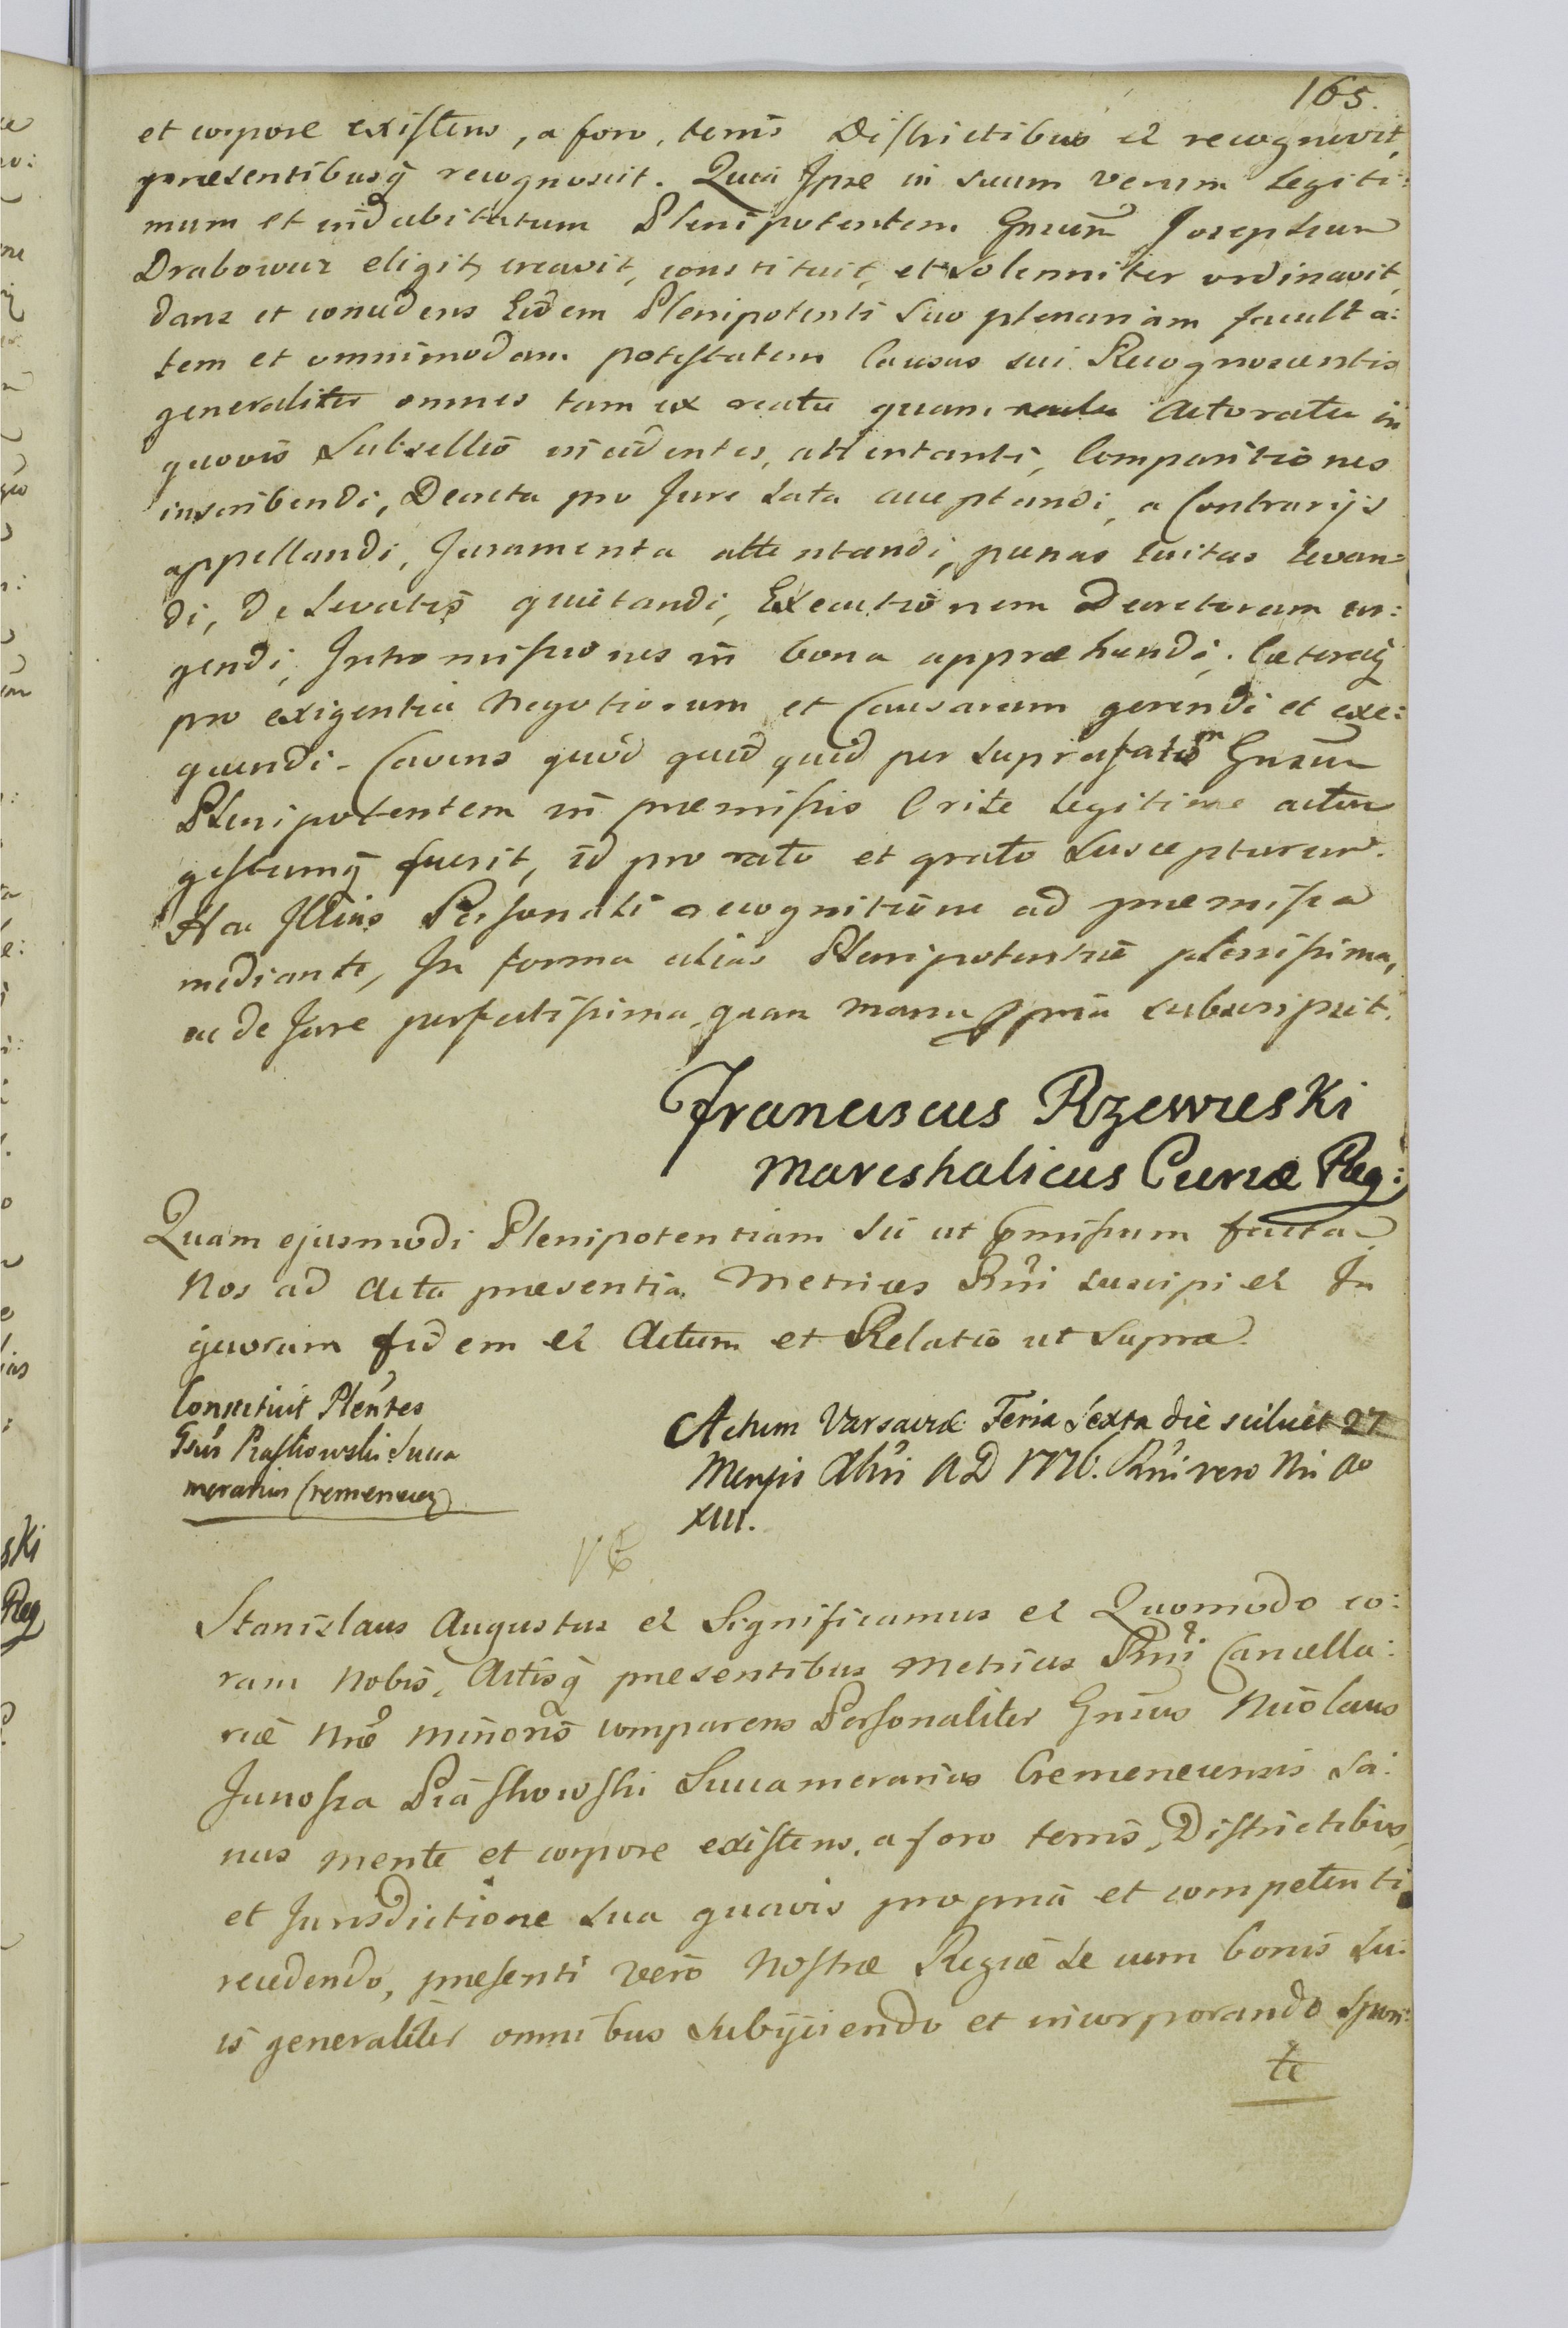 165.
et corpore existens, a foro, terris Districtibus et recognovit,
praesentibusq recognoscit. Quia Ipse in suum verum Legiti:
mum et indubitatum Plenipotentem Gnsum Josephum
Drabowicz eligit, creavit, constituit, et solenniter ordinavit,
dans et concedens Eidem Plenipotenti suo plenariam faculta:
tem et omnimodam potestatem Causas sui Recognoscentis
generaliter omnes tam ex reatu quam Actoratu in
quovis Subsellio incidentes, attentandi, Comparitiones
inscribendi, Decreta pro Jure Lata acceptandi, a Contrarijs
appellandi, Juramenta attentandi, paenas luitas levan=
di, De Levatis quietandi, Executionem Decretorum ur:
gendi, Intromissiones in bona appraehendi, Caeteraq
pro exigentia Negotiorum et Causarum gerendi et exe:
quendi. Cavens quod quid quid per suprafatum Gnsum
Plenipotentem in praemissis rite Legitime actum
gestumq fuerit, id pro rato et grato suscepturum.
Hac Illius Personali recognitione ad praemissa
mediante, In forma alias Plenipotentiae plenissima,
ac de Jure perfectissima, quam manu ppria subscripsit.
Franciscus Rzewuski
Mareshalicus Curiae Reg:
Quam ejusmodi Plenipotentiam sic ut pmissum factam
Nos ad Acta praesentia Metrices Rni suscipi et In
quorum fidem et Actum et Relatio ut supra.
Constituit Plentes
Gsus Praskowski Succa
merarius Cremenecen
Actum Varsaviae Feria Sexta die scilicet 27
Mensis Xbris A D 1776. Rni vero Nri Ao
XIII.
Stanislaus Augustus et Significamus et Quomodo co:
ram Nobis, Actisq praesentibus Metrices Rni Cancella:
riae Nrae Minoris comparens Personaliter Gnsus Nicolaus
Junosza Piaskowski Succamerarius Cremenecensis Sa:
nus mente et corpore existens, a foro terris, Districtibus,
et Jurisdictione sua quavis propria et competenti
recedendo, praesenti vero Nostrae Regiae se cum bonis su:
is generaliter omnibus subijciendo et incorporando spon:
te